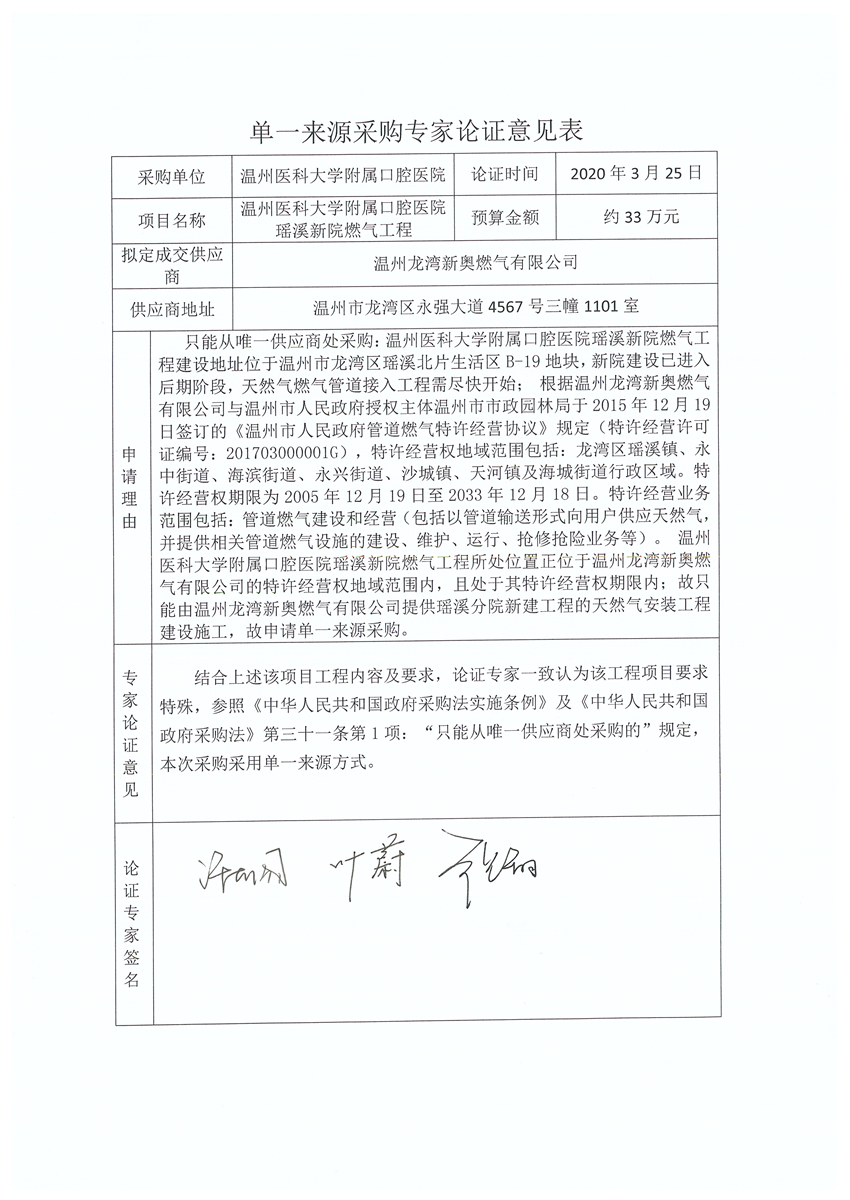 单一来源采购专家论证意见表
采购单位
温州医科大学附属口腔医院
论证时间
2020 年 3 月 25 日
项目名称
温州医科大学附属口腔医院
瑶溪新院燃气工程
预算金额
约 33 万元
拟定成交供应
商
温州龙湾新奥燃气有限公司
供应商地址
温州市龙湾区永强大道 4567 号三幢 1101 室
申请理由
只能从唯一供应商处采购：温州医科大学附属口腔医院瑶溪新院燃气工
程建设地址位于温州市龙湾区瑶溪北片生活区 B-19 地块，新院建设已进入
后期阶段，天然气燃气管道接入工程需尽快开始； 根据温州龙湾新奥燃气
有限公司与温州市人民政府授权主体温州市市政园林局于 2015 年 12 月 19
日签订的《温州市人民政府管道燃气特许经营协议》规定（特许经营许可
证编号：201703000001G），特许经营权地域范围包括：龙湾区瑶溪镇、永
中街道、海滨街道、永兴街道、沙城镇、天河镇及海城街道行政区域。特
许经营权期限为 2005 年 12 月 19 日至 2033 年 12 月 18 日。特许经营业务
范围包括：管道燃气建设和经营（包括以管道输送形式向用户供应天然气，
并提供相关管道燃气设施的建设、维护、运行、抢修抢险业务等）。 温州
医科大学附属口腔医院瑶溪新院燃气工程所处位置正位于温州龙湾新奥燃
气有限公司的特许经营权地域范围内，且处于其特许经营权期限内；故只
能由温州龙湾新奥燃气有限公司提供瑶溪分院新建工程的天然气安装工程
建设施工，故申请单一来源采购。
专家论证意见
结合上述该项目工程内容及要求，论证专家一致认为该工程项目要求
特殊，参照《中华人民共和国政府采购法实施条例》及《中华人民共和国
政府采购法》第三十一条第 1 项：“只能从唯一供应商处采购的”规定，
本次采购采用单一来源方式。
论证专家签名
叶蔚